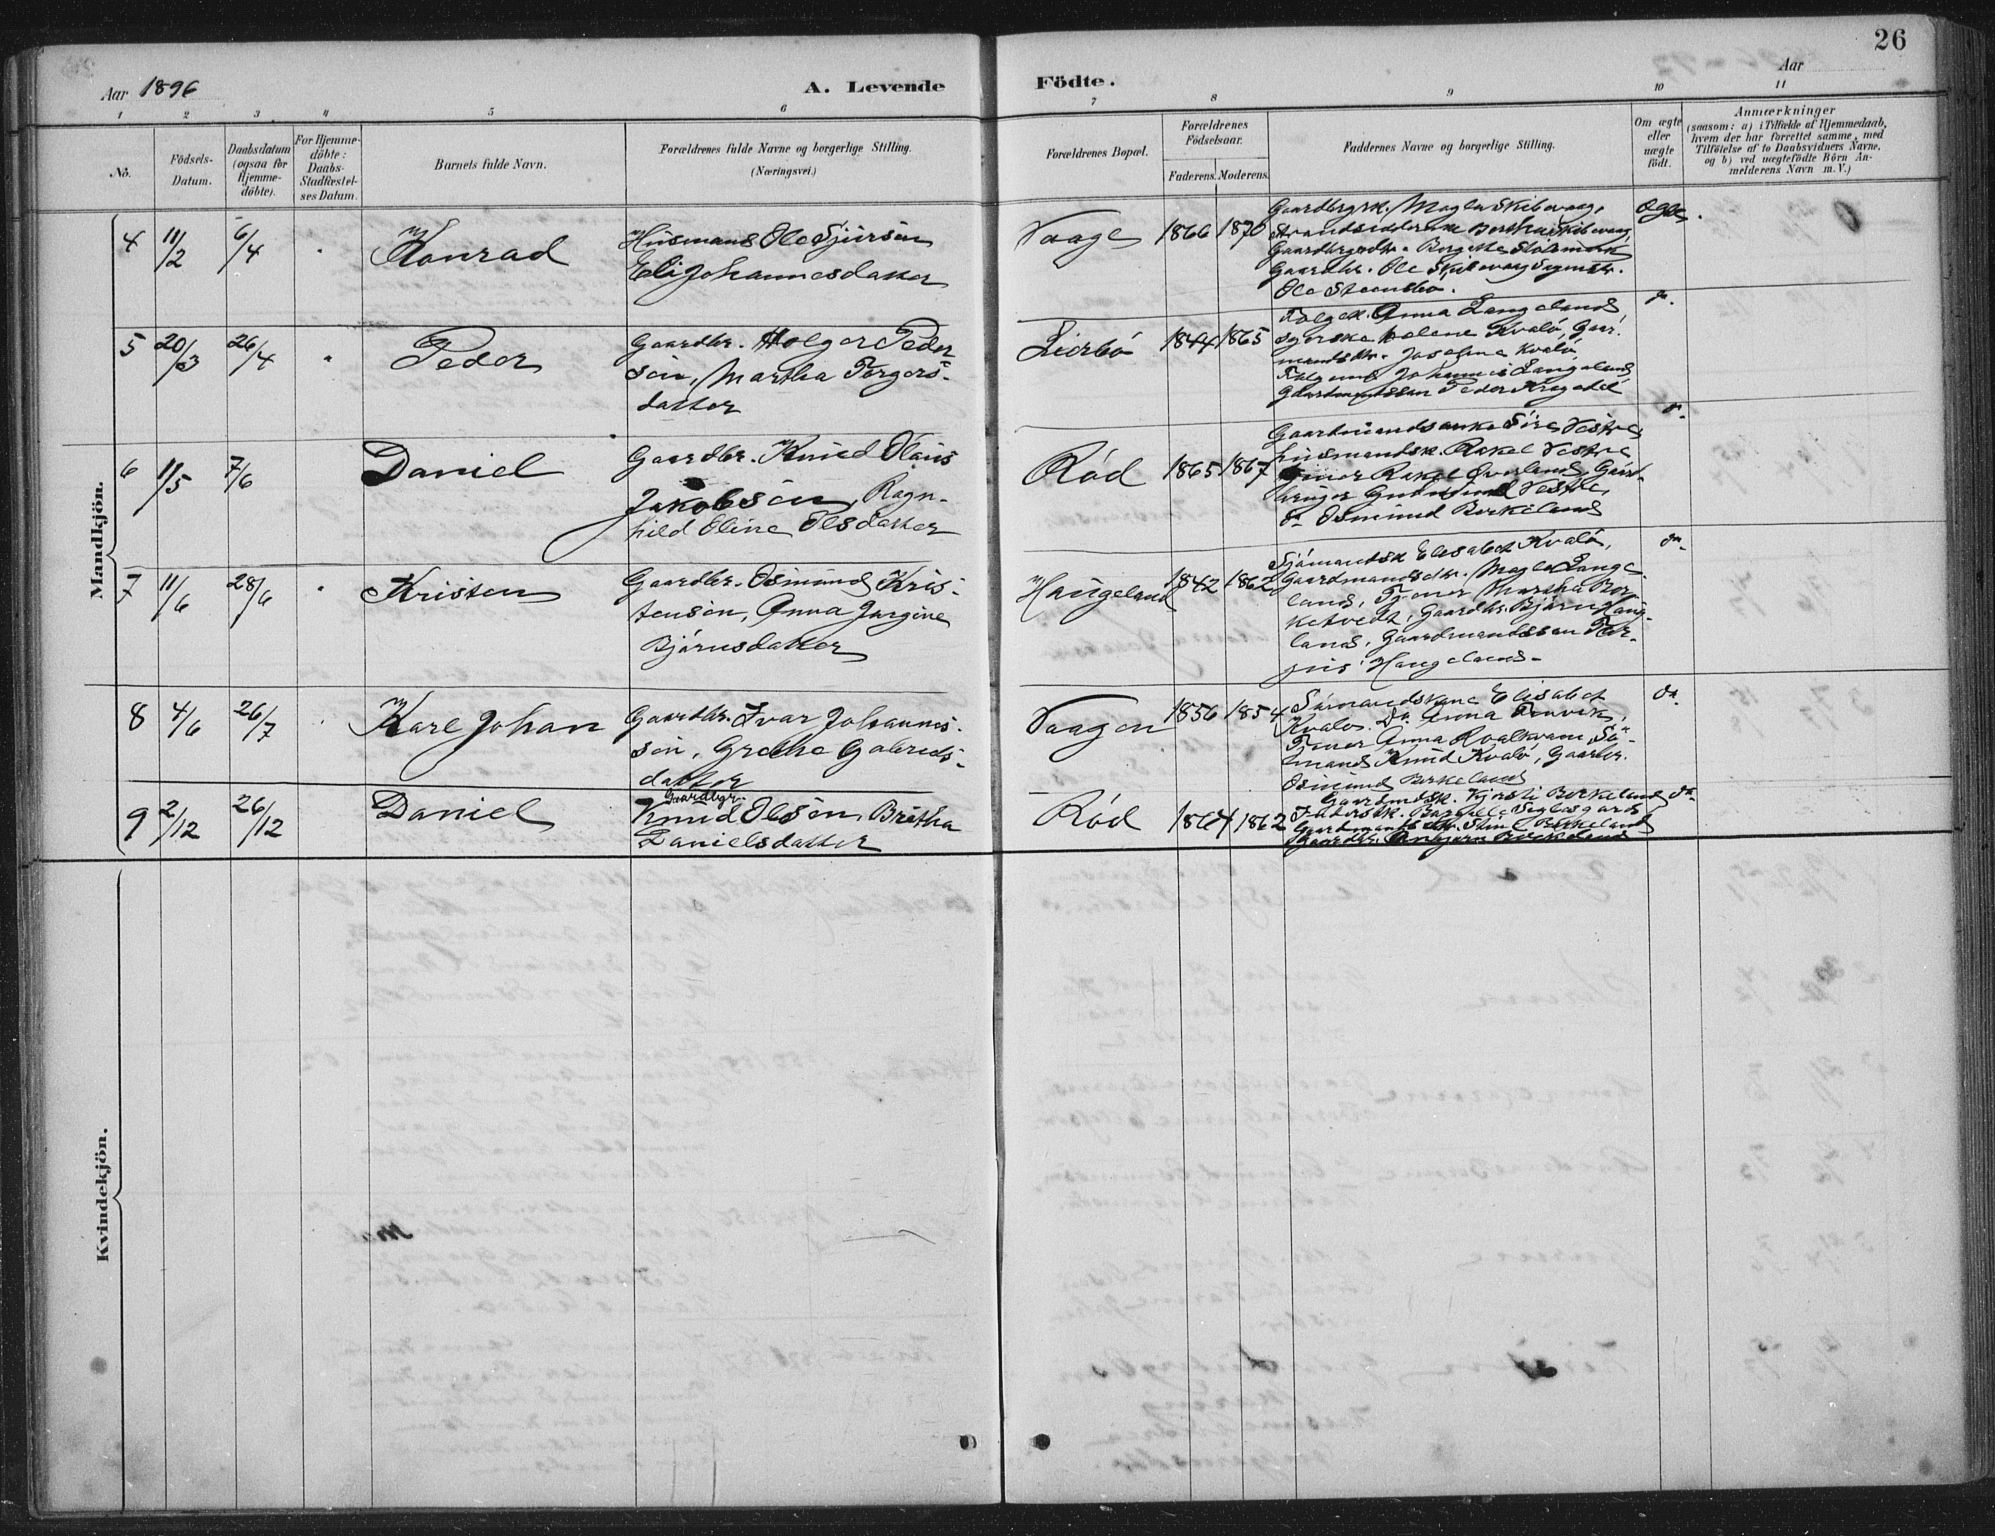 26
Aar 1896
A. Levende
Födte.
Aar
1 2 3 4 5 6 7 8 9 10 11
No.
Födsels-
Datum.
Daabsdatum
(ogsaa for
Hjemme-
döbte).
For Hjemme-
döbte:
Daabs-
Stadfæstel-
ses Datum.
Barnets fulde Navn.
Forældrenes fulde Navne og borgerlige Stilling.
(Næringsvei.)
Forældrenes Bopæl.
Forældrenes
Födselsaar.
Faderens. Moderens.
Faddernes Navne og borgerlige Stilling.
Om ægte
eller
uægte
födt.
Anmærkninger
(saasom: a) i Tilfælde af Hjemmedaab,
hvem der har forrettet samme, med
Tilföielse af to Daabsvidners Navne,
og b) ved uægtefödte Börn An-
melderens Navn m. V.)
Mandkjön.
4 11/2 6/4 Konrad
Husmand Ole Sjursen
Eli Johannesdatter
Vaage 1866 1870
Gaardbrgsk. Magla Skibevaag,
Berthe Skibevaag
Gaardbr. Ole Skibevaag
Ole Steensbö.
Ægte.
5 20/3 26/4 Peder
Gaardbr. Holger Peder-
sen, Martha Torgers-
datter
Lierbö 1844 1865
Anna Langeland
Helene Kvalö, Gaar-
mandsdtr. Josefine Kvalö,
Johannes Langeland
Gaardmandssøn Peder
do.
6 11/5 7/6 Daniel
Gaardbr. Knud Olaus
Jakobsen, Ragn-
hild Oline Olsdatter
Rød 1865 1867
Gaardmandsenke Siri Vestre
Husmandsk. Rakel Vestre
Rakel Øverland, Gaard-
bruger Gudmund Vestre,
do Osmund Birkeland
do.
7 11/6 28/6 Kristen
Gaardbr. Osmund Kris-
tensen, Anna Jorgine
Bjørnsdatter
Haugeland 1842 1862
Sjömandsk. Elisabet Kvalö,
Gaardmandsdtr. Magla Lange-
land, Tjener Martha Bor-
ketvedt, Gaardbr. Björn Haug-
land, Gaardmandssøn Tor-
jus Haugeland
do.
8 4/6 26/7 Karl Johan
Gaardbr. Ivar Johannes-
sen, Grethe Gabriels-
datter
Vaagen 1856 1854
Sömandskone Elisabet
Kvalö. Do Anna
Tjener Anna Roalkvam, Sö-
mand Knud Kvalö, Gaardbr.
Osmund Birkeland
do.
9 2/12 26/12 Daniel
Gaardbgr.
Knud Olsen, Britha
Danielsdatter
Rød 1864 1862
Gaardmdsk. Kjersti Birkeland
Gaardmands dtr. Birkeland
Gaardbr. Birkeland
do.
Kvindekjön.